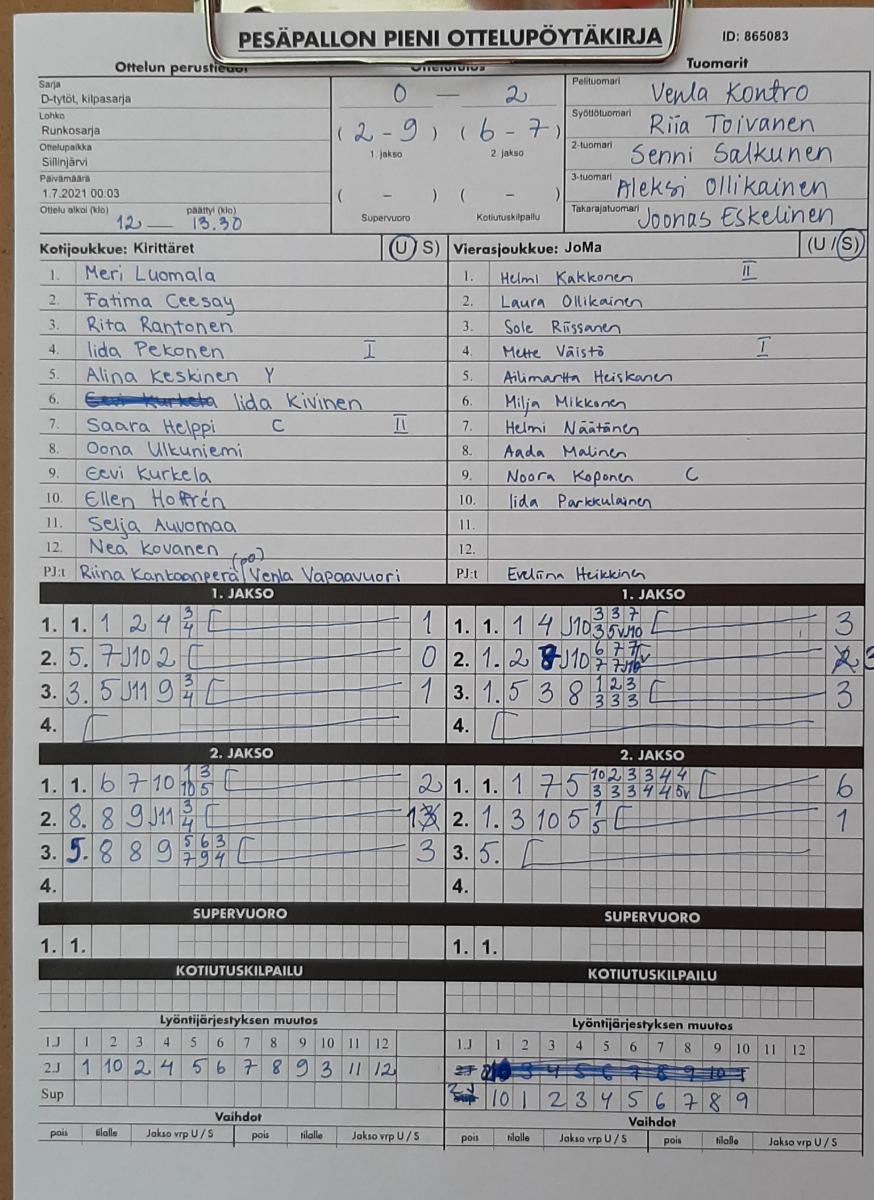 PESÄPALLON PIENI OTTELUPÖYTÄKIRJA ID: 865083
Ottelun perustiedot Ottelutulos Tuomarit
Sarja
D-tytöt, kilpasarja
Lohko
Runkosarja
Ottelupaikka
Siilinjärvi
Päivämäärä
1.7.2021 00:03
Ottelu alkoi (klo) päättyi (klo)
12 — 13.30
0 — 2
( 2 - 9 ) ( 6 - 7 )
1. jakso 2. jakso
( - ) ( - )
Supervuoro Kotiutuskilpailu
Pelituomari Venla Kontro
Syöttötuomari Riia Toivanen
2-tuomari Senni Salkunen
3-tuomari Aleksi Ollikainen
Takarajatuomari Joonas Eskelinen
Kotijoukkue: Kirittäret (U/S)
1. Meri Luomala
2. Fatima Ceesay
3. Rita Rantonen
4. Iida Pekonen I
5. Alina Keskinen Y
6. Eevi Kurkela Iida Kivinen
7. Saara Helppi C II
8. Oona Ulkuniemi
9. Eevi Kurkela
10. Ellen Hoffrén
11. Selja Auvomaa
12. Nea Kovanen
PJ:t Riina Kantoanperä (po) Venla Vapaavuori
Vierasjoukkue: JoMa (U/S)
1. Helmi Kakkonen II
2. Laura Ollikainen
3. Sole Riissanen
4. Mette Väistö I
5. Ailimartta Heiskanen
6. Milja Mikkonen
7. Helmi Näätänen
8. Aada Malinen
9. Noora Koponen C
10. Iida Parkkulainen
11.
12.
PJ:t Eveliina Heikkinen
1. JAKSO
1. 1. 1 2 4 3/4 [ 1
2. 5. 7 J10 2 [ 0
3. 3. 5 J11 9 3/4 [ 1
4. [
1. JAKSO
1. 1. 1 4 J10 3/3 3/5v 7/J10 [ 3
2. 1. 2 8 J10 6/7 7/7 [ 2 3
3. 1. 5 3 8 1/3 2/3 3/3 [ 3
4. [
2. JAKSO
1. 1. 6 7 10 1/10 3/5 [ 2
2. 8. 8 9 J11 3/4 [ 1
3. 5. 8 8 9 5/7 6/9 3/4 [ 3
4.
2. JAKSO
1. 1. 1 7 5 10/3 2/3 3/3 3/4 4/4 4/5v [ 6
2. 1. 3 10 5 1/5 [ 1
3. 5. [
4.
SUPERVUORO
1. 1.
SUPERVUORO
1. 1.
KOTIUTUSKILPAILU
KOTIUTUSKILPAILU
Lyöntijärjestyksen muutos
1.J 1 2 3 4 5 6 7 8 9 10 11 12
2.J 1 10 2 4 5 6 7 8 9 3 11 12
Sup
Vaihdot
pois tilalle Jakso vrp U / S pois tilalle Jakso vrp U / S
Lyöntijärjestyksen muutos
1.J 1 2 3 4 5 6 7 8 9 10 11 12
2.J 3 4 5 6 7 8 9 10 1
2J Sup 10 1 2 3 4 5 6 7 8 9
Vaihdot
pois tilalle Jakso vrp U / S pois tilalle Jakso vrp U / S